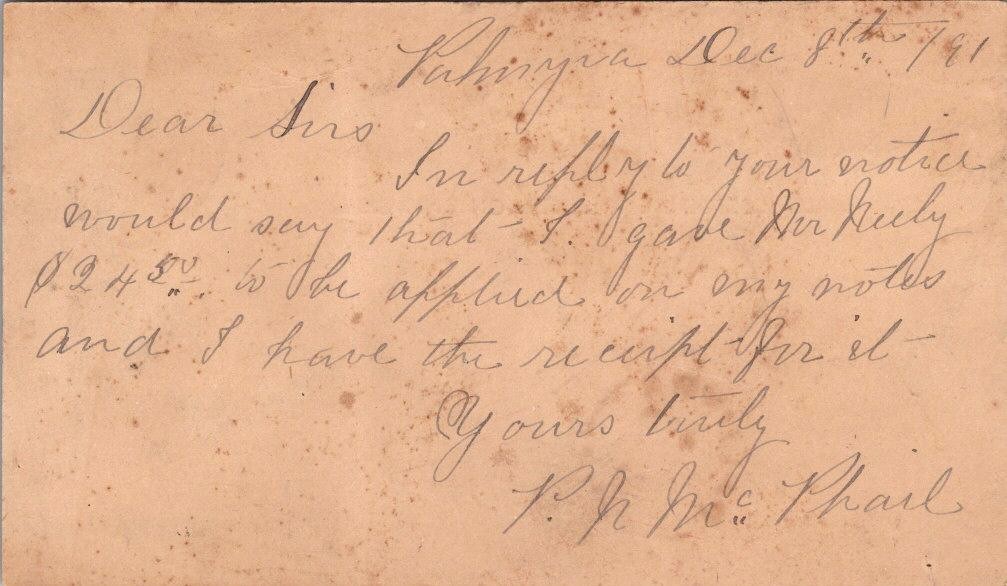 Palmyra Dec 8th /91
Dear Sirs
In reply to your notice
would say that I. gave Mr Neely
$24 50 to be applied on my notes
and I have the receipt for it
Yours truly
P. N McPhail